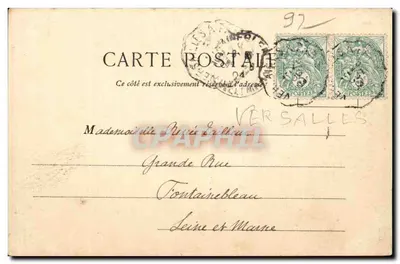 92
CARTE POSTALE
Ce côté est exclusivement réservé à l'adresse
VERSAILLES
Mademoiselle Renée Jullien
Grande Rue
Fontainebleau
Seine et Marne